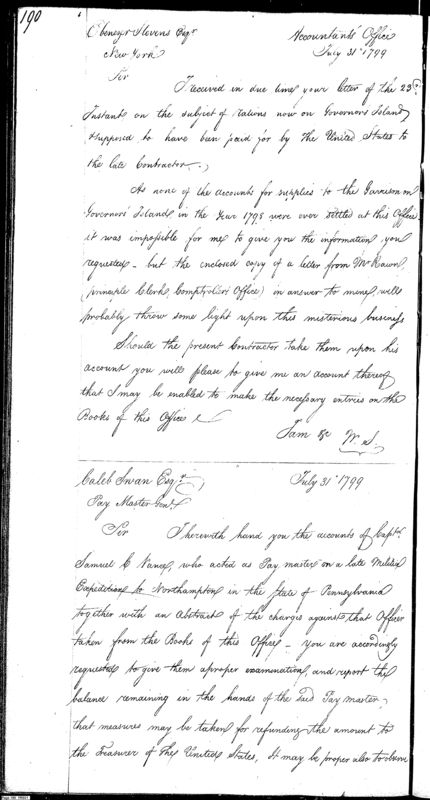 190
Ebenezr Stevens Esqr
Accountants Office
New York
July 31st 1799
Sir
I received in due time your letter of the 23d
Instant on the subject of rations now on Governors Island
supposed to have been paid for by the United States to
the late Contractor.
As none of the accounts for supplies to the Garrison on
Governors Island in the Year 1798 were ever settled at this Office
it was impossible for me to give you the information you
requested - but the enclosed copy of a letter from Mr
(principle Clerk Comptrollers Office) in answer to mine, will
probably throw some light upon this misterious business
Should the present Contractor take them upon his
account you will please to give me an account thereof
that I may be enabled to make the necessary entries on the
Books of this Office
I am &c W. S.
Caleb Swan Esqr
July 31st 1799
Pay Master Genl
Sir I herewith hand you the accounts of Captn
Samuel C Vance, who acted as Pay master on a late Militia
Expedition to Northampton in the State of Pennsylvania
together with an Abstract of the charges against that Officer
taken from the Books of this Office - you are accordingly
requested to give them a proper examination, and report the
balance remaining in the hands of the said Pay master,
that measures may be taken for refunding the amount to
the Treasurer of the United States, It may be proper also to observe